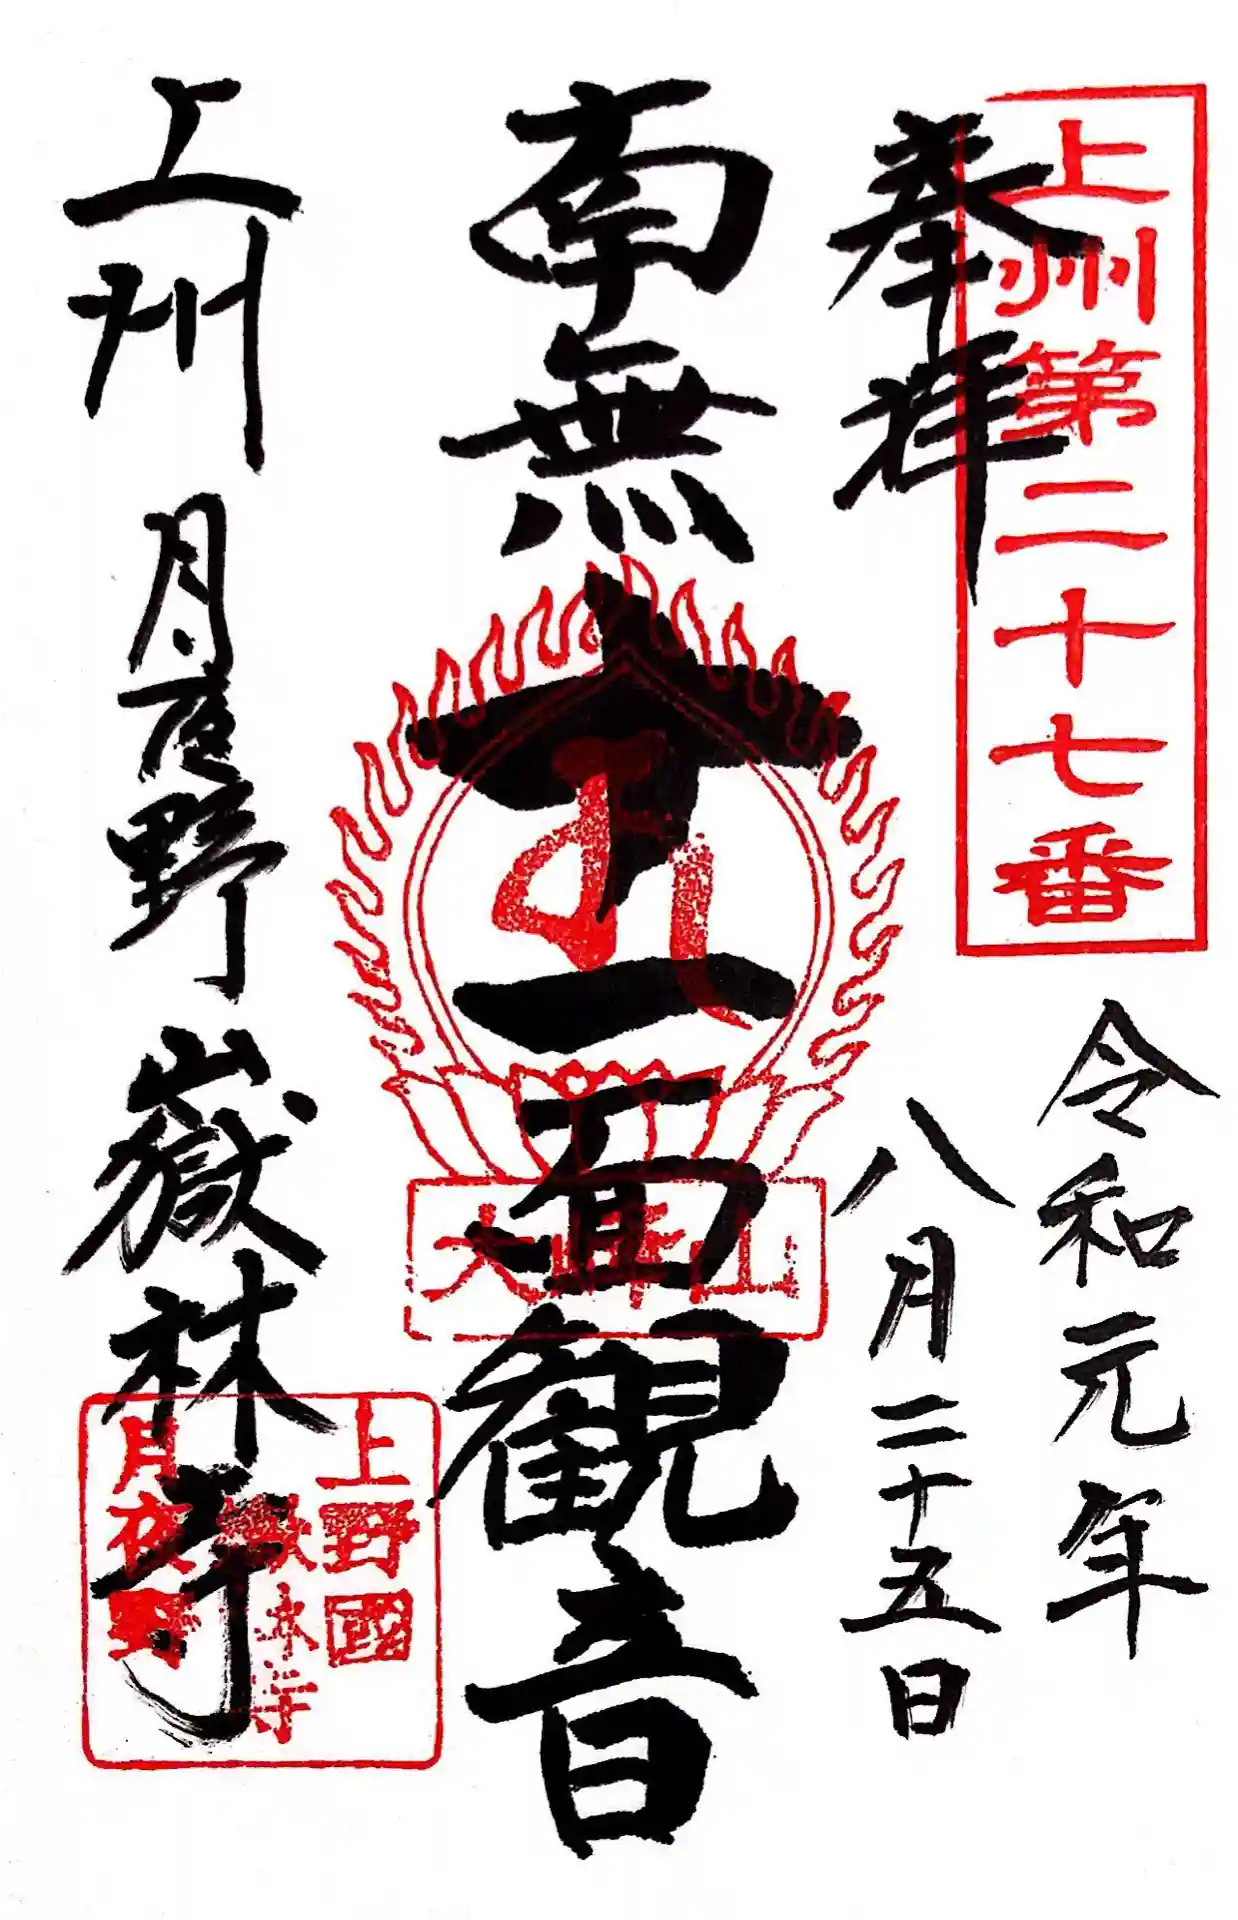 上州第二十七番
奉拝
令和元年
八月二十五日
南無十一面観音
大峰山
上州 月夜野 嶽林寺
上野國
嶽林寺
月夜野